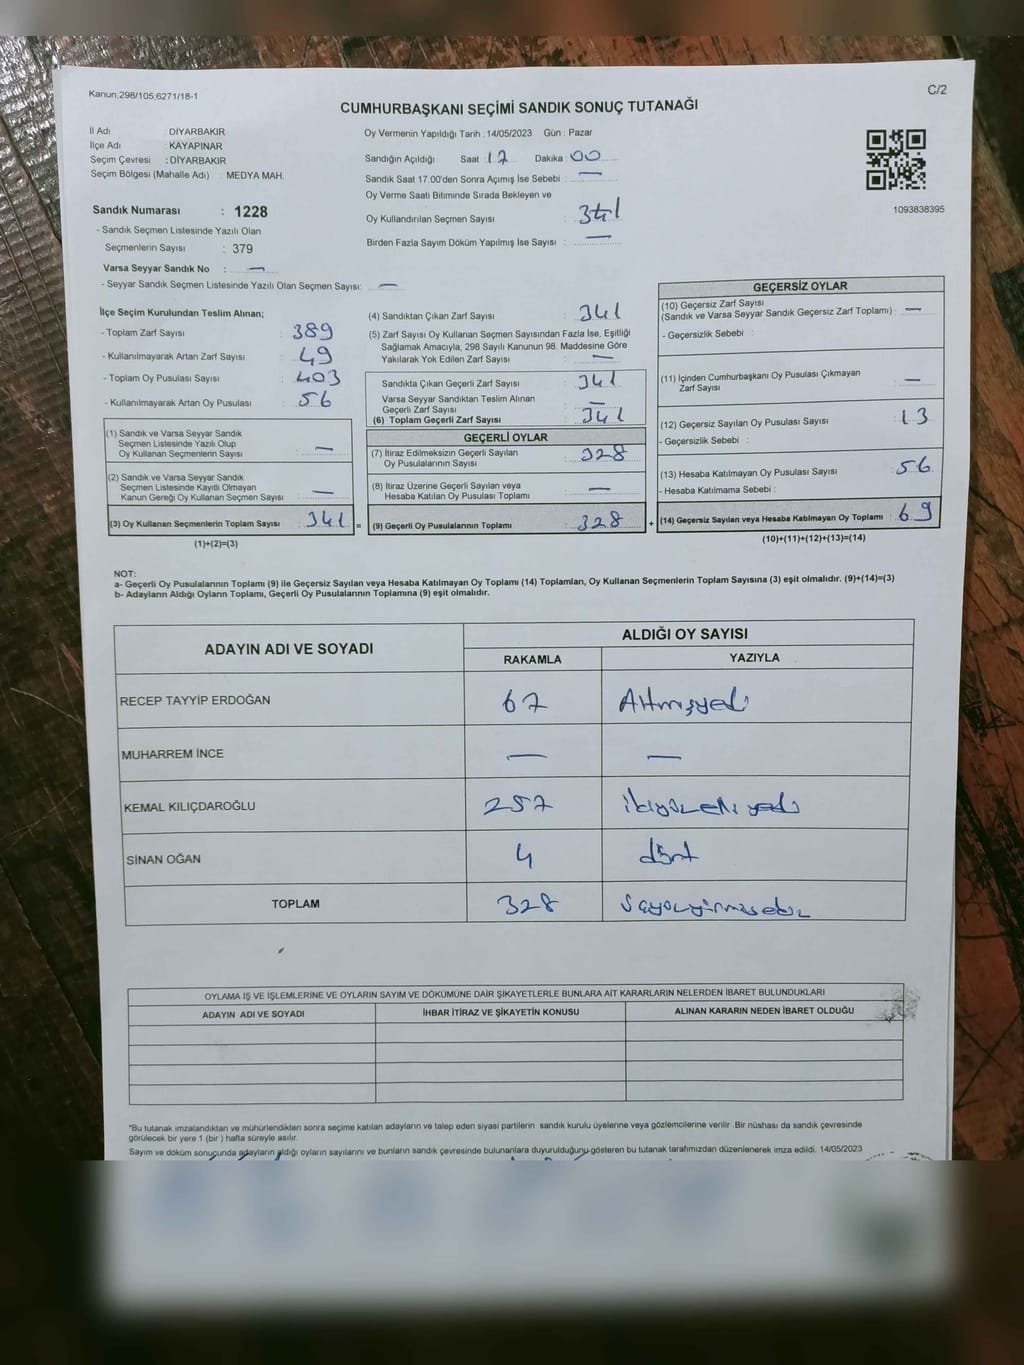 Kanun;298/105;6271/18-1
C/2
CUMHURBAŞKANI SEÇİMİ SANDIK SONUÇ TUTANAĞI
İl Adı : DİYARBAKIR
İlçe Adı : KAYAPINAR
Seçim Çevresi : DİYARBAKIR
Seçim Bölgesi (Mahalle Adı) : MEDYA MAH.
Oy Vermenin Yapıldığı Tarih : 14/05/2023 Gün : Pazar
Sandığın Açıldığı Saat 17 Dakika 00
Sandık Saat 17:00'den Sonra Açımış İse Sebebi : —
Oy Verme Saati Bitiminde Sırada Bekleyen ve
Oy Kullandırılan Seçmen Sayısı : 341
Birden Fazla Sayım Döküm Yapılmış İse Sayısı : —
1093838395
Sandık Numarası : 1228
- Sandık Seçmen Listesinde Yazılı Olan
Seçmenlerin Sayısı : 379
Varsa Seyyar Sandık No : —
- Seyyar Sandık Seçmen Listesinde Yazılı Olan Seçmen Sayısı: —
İlçe Seçim Kurulundan Teslim Alınan;
- Toplam Zarf Sayısı : 389
- Kullanılmayarak Artan Zarf Sayısı : 49
- Toplam Oy Pusulası Sayısı : 403
- Kullanılmayarak Artan Oy Pusulası : 56
(1) Sandık ve Varsa Seyyar Sandık
Seçmen Listesinde Yazılı Olup
Oy Kullanan Seçmenlerin Sayısı : —
(2) Sandık ve Varsa Seyyar Sandık
Seçmen Listesinde Kayıtlı Olmayan
Kanun Gereği Oy Kullanan Seçmen Sayısı : —
(3) Oy Kullanan Seçmenlerin Toplam Sayısı : 341 =
(1)+(2)=(3)
(4) Sandıktan Çıkan Zarf Sayısı : 341
(5) Zarf Sayısı Oy Kullanan Seçmen Sayısından Fazla İse, Eşitliği
Sağlamak Amacıyla, 298 Sayılı Kanunun 98. Maddesine Göre
Yakılarak Yok Edilen Zarf Sayısı : —
Sandıkta Çıkan Geçerli Zarf Sayısı : 341
Varsa Seyyar Sandıktan Teslim Alınan
Geçerli Zarf Sayısı : —
(6) Toplam Geçerli Zarf Sayısı : 341
GEÇERLİ OYLAR
(7) İtiraz Edilmeksizin Geçerli Sayılan
Oy Pusulalarının Sayısı : 328
(8) İtiraz Üzerine Geçerli Sayılan veya
Hesaba Katılan Oy Pusulası Toplamı : —
(9) Geçerli Oy Pusulalarının Toplamı : 328 +
GEÇERSİZ OYLAR
(10) Geçersiz Zarf Sayısı
(Sandık ve Varsa Seyyar Sandık Geçersiz Zarf Toplamı) : —
- Geçersizlik Sebebi :
(11) İçinden Cumhurbaşkanı Oy Pusulası Çıkmayan
Zarf Sayısı : —
(12) Geçersiz Sayılan Oy Pusulası Sayısı : 13
- Geçersizlik Sebebi :
(13) Hesaba Katılmayan Oy Pusulası Sayısı : 56
- Hesaba Katılmama Sebebi :
(14) Geçersiz Sayılan veya Hesaba Katılmayan Oy Toplamı : 69
(10)+(11)+(12)+(13)=(14)
NOT:
a- Geçerli Oy Pusulalarının Toplamı (9) ile Geçersiz Sayılan veya Hesaba Katılmayan Oy Toplamı (14) Toplamları, Oy Kullanan Seçmenlerin Toplam Sayısına (3) eşit olmalıdır. (9)+(14)=(3)
b- Adayların Aldığı Oyların Toplamı, Geçerli Oy Pusulalarının Toplamına (9) eşit olmalıdır.
ADAYIN ADI VE SOYADI
ALDIĞI OY SAYISI
RAKAMLA YAZIYLA
RECEP TAYYİP ERDOĞAN 67 Altmışyedi
MUHARREM İNCE — —
KEMAL KILIÇDAROĞLU 257 ikiyüzelliyedi
SİNAN OĞAN 4 dört
TOPLAM 328
OYLAMA İŞ VE İŞLEMLERİNE VE OYLARIN SAYIM VE DÖKÜMÜNE DAİR ŞİKAYETLERLE BUNLARA AİT KARARLARIN NELERDEN İBARET BULUNDUKLARI
ADAYIN ADI VE SOYADI İHBAR İTİRAZ VE ŞİKAYETİN KONUSU ALINAN KARARIN NEDEN İBARET OLDUĞU
*Bu tutanak imzalandıktan ve mühürlendikten sonra seçime katılan adayların ve talep eden siyasi partilerin sandık kurulu üyelerine veya gözlemcilerine verilir .Bir nüshası da sandık çevresinde
görülecek bir yere 1 (bir ) hafta süreyle asılır.
Sayım ve döküm sonucunda adayların aldığı oyların sayılarını ve bunların sandık çevresinde bulunanlara duyurulduğunu gösteren bu tutanak tarafımızdan düzenlenerek imza edildi. 14/05/2023